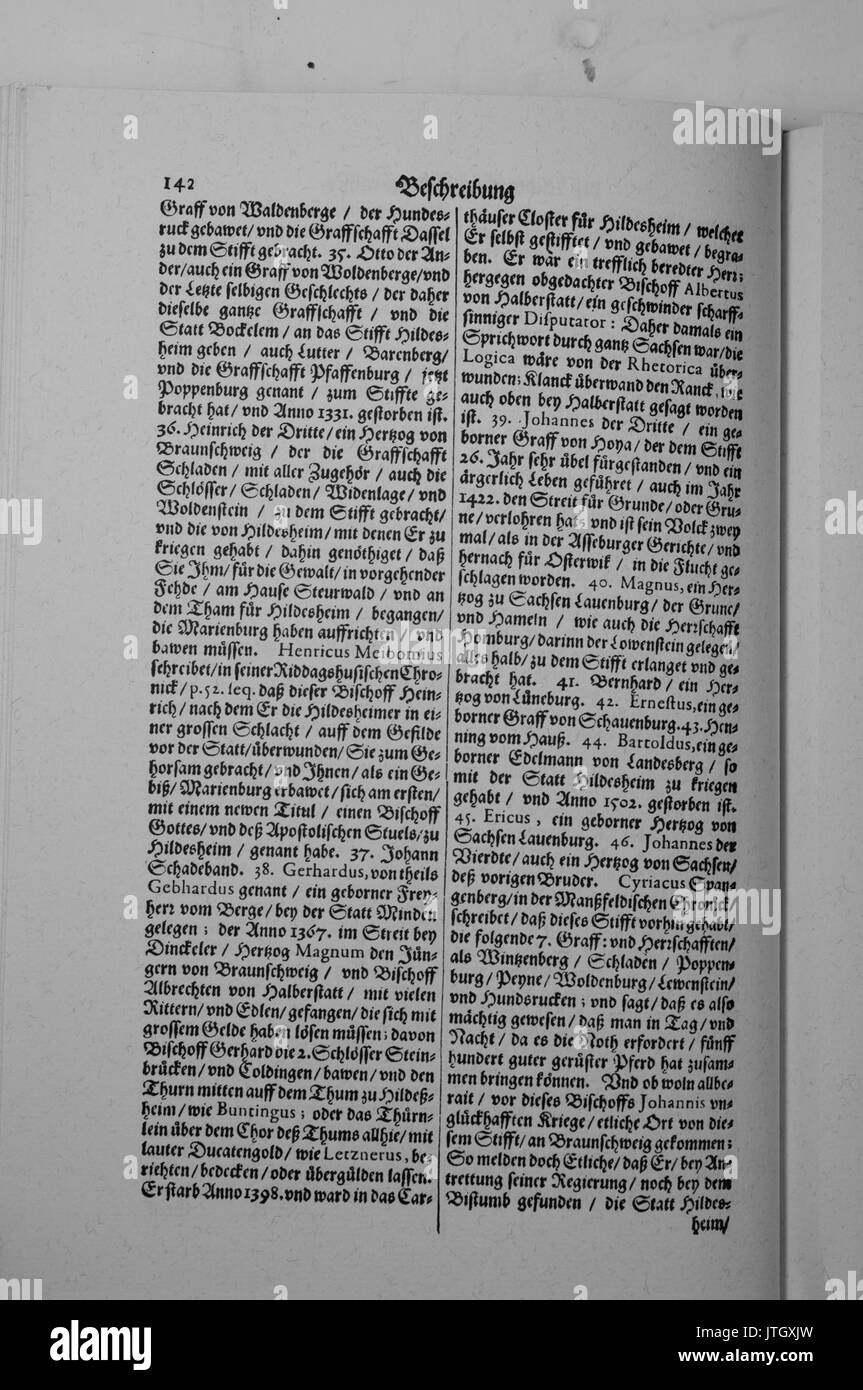 142
Beschreibung
Graff von Waldenberge / der Hundes-
ruck gebawet / vnd die Graffschafft Dassel
zu dem Stifft gebracht. 35. Otto der An-
der / auch ein Graff von Woldenberge / vnd
der Letzte selbigen Geschlechts / der daher
dieselbe gantze Graffschafft / vnd die
Statt Bockelem / an das Stifft Hildes-
heim geben / auch Lutter / Barenberg /
vnd die Graffschafft Pfaffenburg / jetzt
Poppenburg genant / zum Stiffte ge-
bracht hat / vnd Anno 1331. gestorben ist.
36. Heinrich der Dritte / ein Hertzog von
Braunschweig / der die Graffschafft
Schladen / mit aller Zugehör / auch die
Schlösser / Schladen / Widenlage / vnd
Woldenstein / zu dem Stifft gebracht /
vnd die von Hildesheim / mit denen Er zu
kriegen gehabt / dahin genöthiget / daß
Sie Jhm / für die Gewalt / in vorgehender
Fehde / am Hause Steurwald / vnd an
dem Tham für Hildesheim / begangen /
die Marienburg haben auffrichten / vnd
bawen müssen. Henricus Meibomius
schreibet / in seiner Riddagshusischen Chro-
nick / p. 52. seq. daß dieser Bischoff Hein-
rich / nach dem Er die Hildesheimer in ei-
ner grossen Schlacht / auff dem Gefilde
vor der Statt / überwunden / Sie zum Ge-
horsam gebracht / vnd Jhnen / als ein Ge-
biß / Marienburg erbawet / sich am ersten /
mit einem newen Titul / einen Bischoff
Gottes / vnd deß Apostolischen Stuels / zu
Hildesheim / genant habe. 37. Johann
Schadeband. 38. Gerhardus, von theils
Gebhardus genant / ein geborner Frey-
herr vom Berge / bey der Statt Minden
gelegen ; der Anno 1367. im Streit bey
Dinckeler / Hertzog Magnum den Jün-
gern von Braunschweig / vnd Bischoff
Albrechten von Halberstatt / mit vielen
Rittern / vnd Edlen / gefangen / die sich mit
grossem Gelde haben lösen müssen ; davon
Bischoff Gerhard die 2. Schlösser Stein-
brücken / vnd Coldingen / bawen / vnd den
Thurn mitten auff dem Thum zu Hildeß-
heim / wie Buntingus ; oder das Thürn-
lein über dem Chor deß Thums allhie / mit
lauter Ducatengold / wie Letznerus, be-
richten / bedecken / oder übergülden lassen.
Er starb Anno 1398. vnd ward in das Car-
thäuser Closter für Hildesheim / welches
Er selbst gestifftet / vnd gebawet / begra-
ben. Er war ein trefflich beredter Herr ;
hergegen obgedachter Bischoff Albertus
von Halberstatt / ein geschwinder scharff-
sinniger Disputator : Daher damals ein
Sprichwort durch gantz Sachsen war / die
Logica wäre von der Rhetorica über-
wunden ; Klanck überwand den Ranck, wie
auch oben bey Halberstatt gesagt worden
ist. 39. Johannes der Dritte / ein ge-
borner Graff von Hoya / der dem Stifft
26. Jahr sehr übel fürgestanden / vnd ein
ärgerlich Leben geführet / auch im Jahr
1422. den Streit für Grunde / oder Gru-
ne / verlohren hat / vnd ist sein Volck zwey
mal / als in der Asseburger Gerichte / vnd
hernach für Osterwik / in die Flucht ge-
schlagen worden. 40. Magnus, ein Her-
tzog zu Sachsen Lauenburg / der Grune /
vnd Hameln / wie auch die Herrschafft
Homburg / darinn der Lowenstein gelegen /
alles halb / zu dem Stifft erlanget vnd ge-
bracht hat. 41. Bernhard / ein Her-
tzog von Lüneburg. 42. Ernestus, ein ge-
borner Graff von Schauenburg. 43. Hen-
ning vom Hauß. 44. Bartoldus, ein ge-
borner Edelmann von Landesberg / so
mit der Statt Hildesheim zu kriegen
gehabt / vnd Anno 1502. gestorben ist.
45. Ericus, ein geborner Hertzog von
Sachsen Lauenburg. 46. Johannes der
Vierdte / auch ein Hertzog von Sachsen /
deß vorigen Bruder. Cyriacus Span-
genberg / in der Manßfeldischen Chronick /
schreibet / daß dieses Stifft vorhin gehabt /
die folgende 7. Graff: vnd Herrschafften /
als Wintzenberg / Schladen / Poppen-
burg / Peyne / Woldenburg / Lewenstein /
vnd Hundsrucken ; vnd sagt / daß es also
mächtig gewesen / daß man in Tag / vnd
Nacht / da es die Noth erfordert / fünff
hundert guter gerüster Pferd hat zusam-
men bringen können. Vnd ob woln allbe-
rait / vor dieses Bischoffs Johannis vn-
glückhafften Kriege / etliche Ort von die-
sem Stifft / an Braunschweig gekommen ;
So melden doch Etliche / daß Er / bey An-
trettung seiner Regierung / noch bey dem
Bistumb gefunden / die Statt Hildes-
heim /
alamy
alamy
www.alamy.com
Image ID: JTGXJW